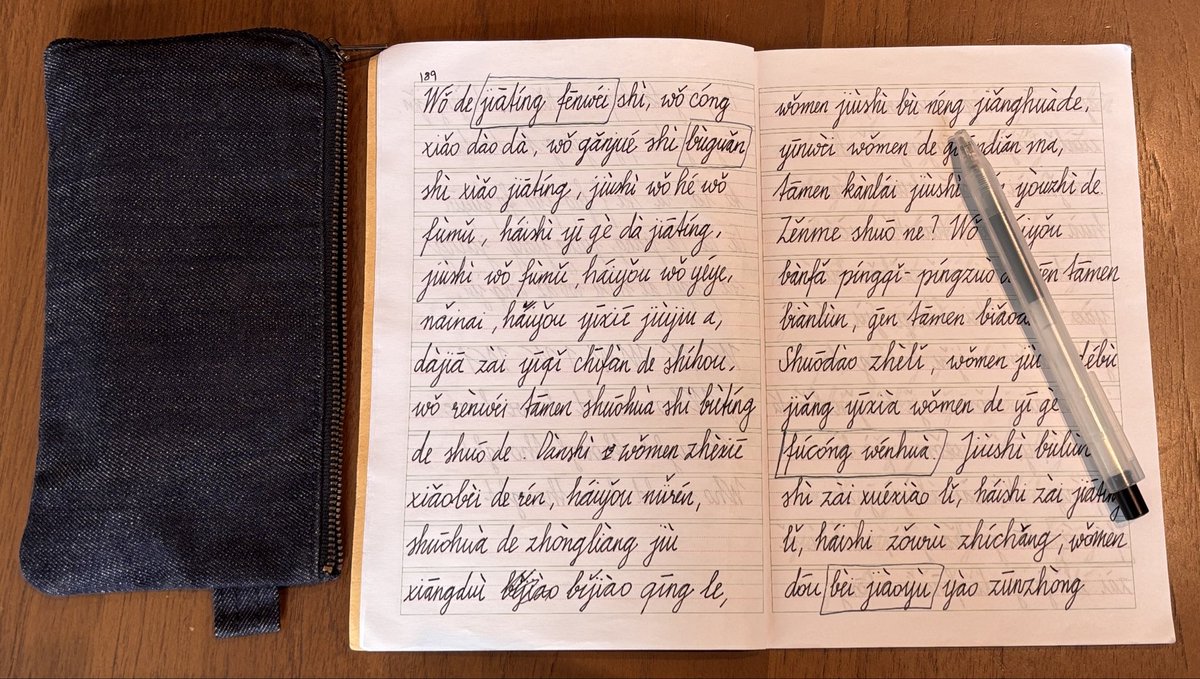 189
Wǒ de jiātíng fēnwéi shì, wǒ cóng
xiǎo dào dà, wǒ gǎnjué shì bùguǎn
shì xiǎo jiātíng, jiùshì wǒ hé wǒ
fùmǔ, háishì yī gè dà jiātíng,
jiùshì wǒ fùmǔ, háiyǒu wǒ yéye,
nǎinai, háiyǒu yīxiē jiùjiu a,
dàjiā zài yīqǐ chīfàn de shíhou.
wǒ rènwéi tāmen shuōhuà shì bùtíng
de shuō de. Dànshì wǒmen zhèxiē
xiǎobèi de rén, háiyǒu nǚrén,
shuōhuà de zhòngliàng jiù
xiāngduì bǐjiào qīng le,
wǒmen jiùshì bù néng jiǎnghuà de,
yīnwèi wǒmen de ma,
tāmen kànlái jiùshì yòuzhì de.
Zěnme shuō ne?
bànfǎ píngqǐ-píngzuò tāmen
biànlùn, gēn tāmen
Shuōdào zhèlǐ, wǒmen
jiǎng yīxià wǒmen de yī gè
fúcóng wénhuà. Jiùshì bùlùn
shì zài xuéxiào lǐ, háishi zài
lǐ, háishi zǒurù zhíchǎng, wǒmen
dōu bèi jiàoyù yào zūnzhòng